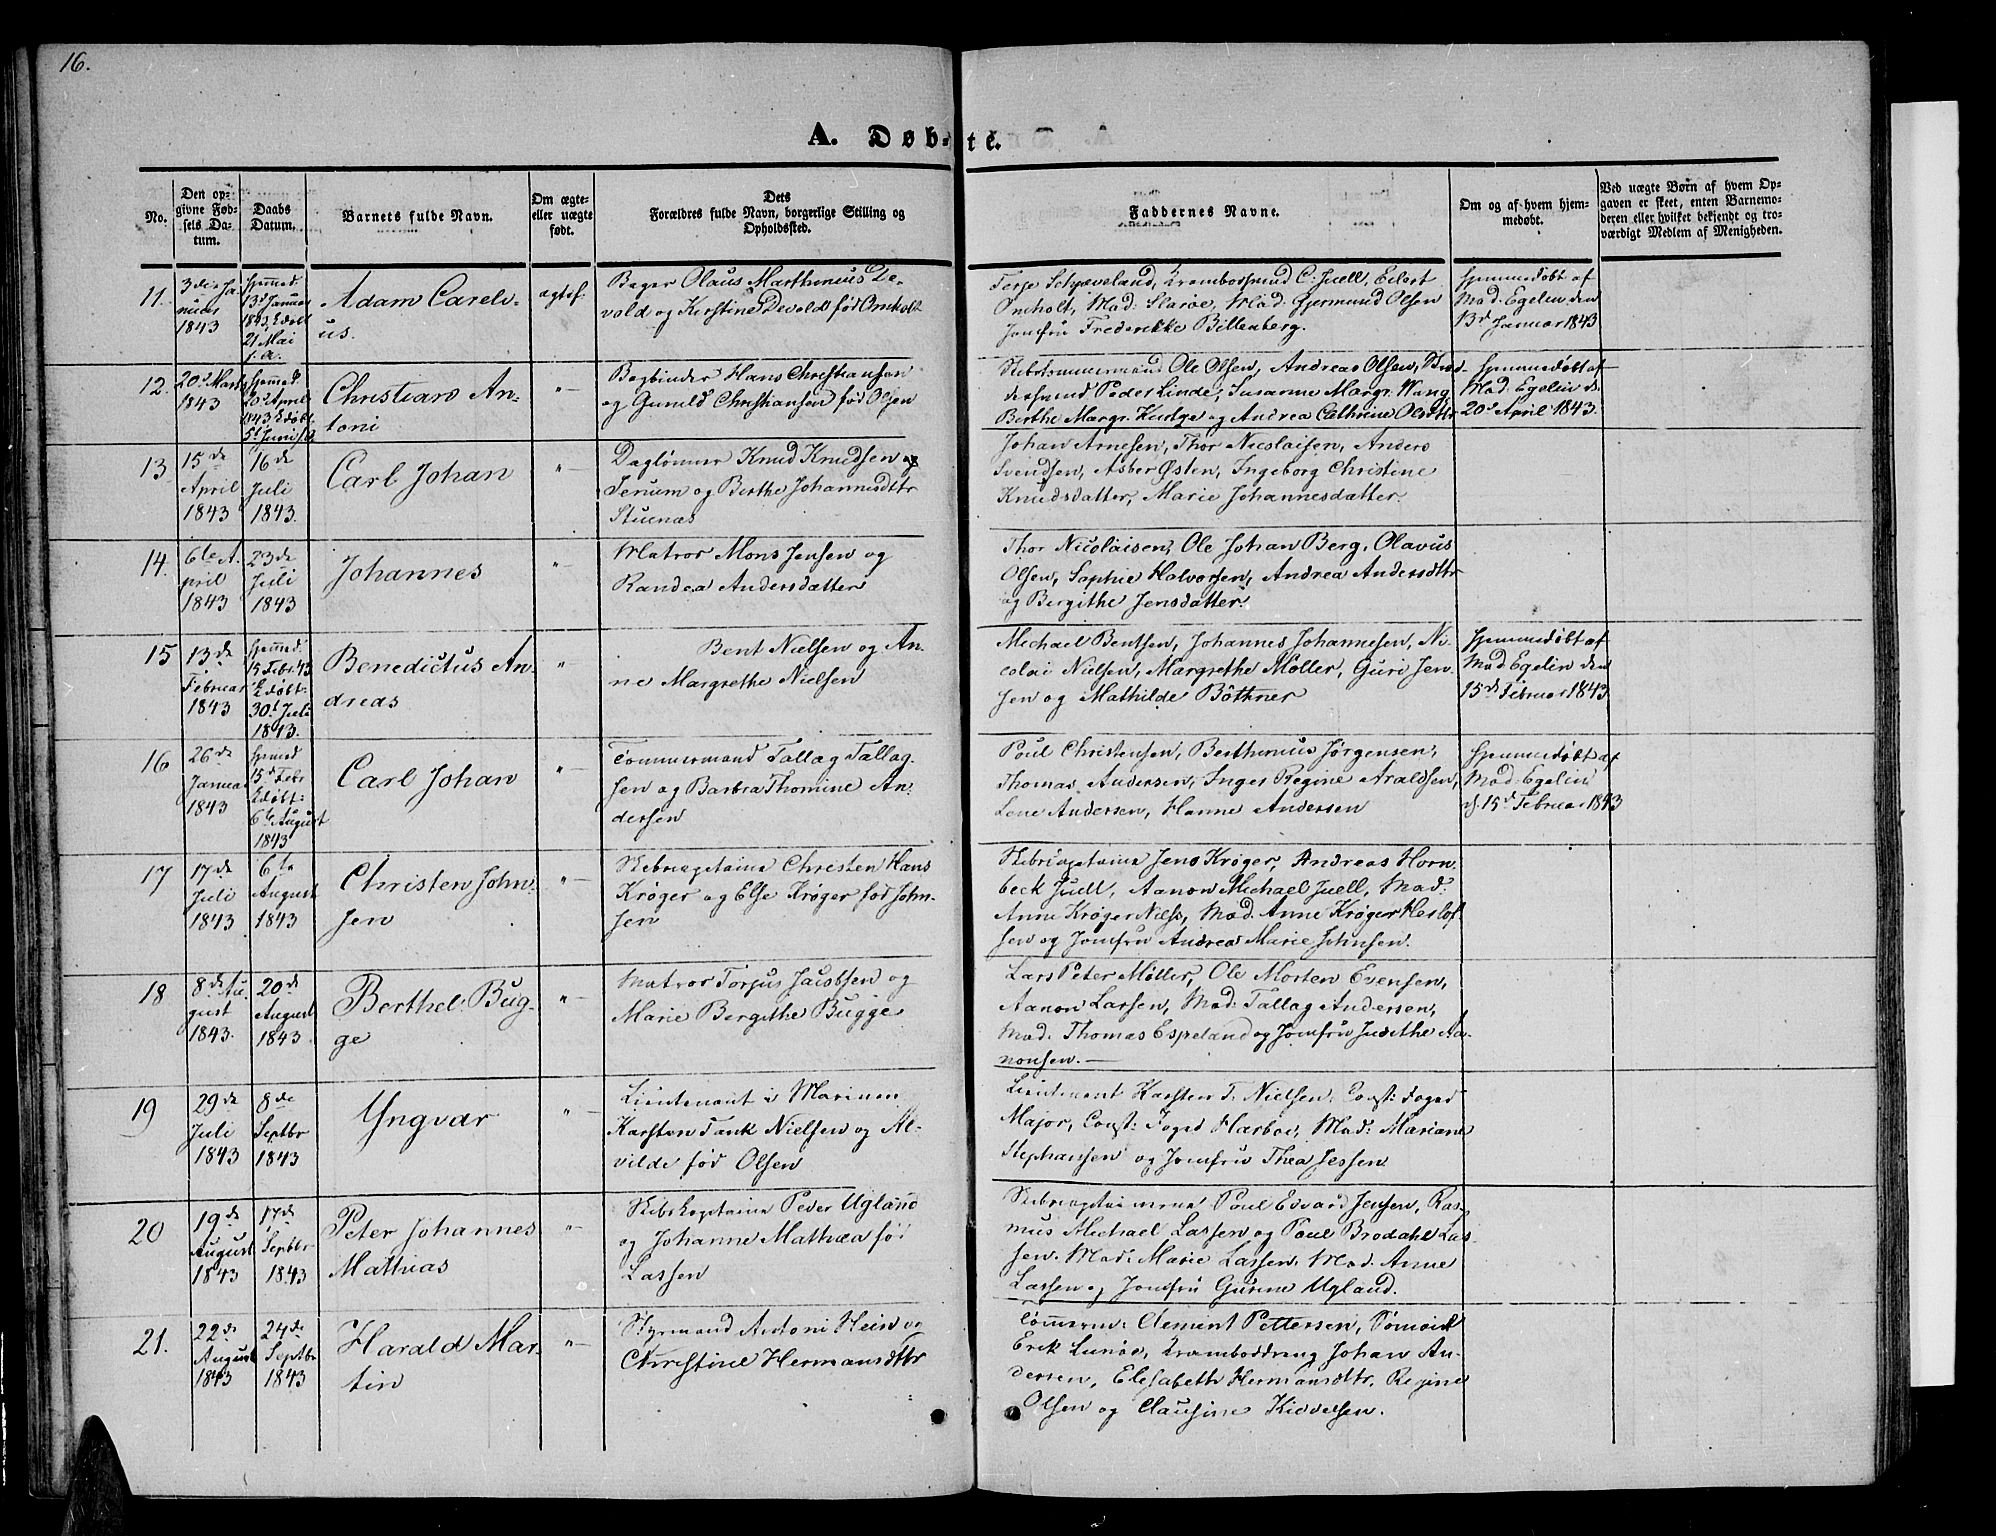 16.
A. Døb-te.
No.
Den op-
givne Fød-
sels Da-
tum.
Daabs
Datum.
Barnets fulde Navn.
Om ægte-
eller uægte
født.
Dets
Forældres fulde Navn, borgerlige Stilling og
Opholdssted.
Faddernes Navne.
Om og af hvem hjem-
medøbt.
Ved uægte Børn af hvem Op-
gaven er skeet, enten Barnemo-
deren eller hvilket bekjendt og tro-
værdigt Medlem af Menigheden.
11.
3die Ja
nuar
1843
hjemmed.
13d Januar
1843, Edøbt
21 Mai
s. a.
Adam Careli-
us.
ægtef.
Bager Olaus Marthinius De-
vold og Kirstine Devold fød Omholt
Terje Schjæveland, Krambodsvend C: Juell, Eilert
Omholt, Mad: Slaröe, Mad: Gjermund Olsen
Jomfru Frederikke Billenberg.
Hjemmedøbt af
Mad: Egelin den
13d Januar 1843
12.
20d Marts
1843
hjemmed.
20d April
1843, Edøbt
5t Juni s.a.
Christian An-
toni
"
Bogbinder Hans Christiansen
og Gunild Christiansen fød Olsen
Skibstømmermand Ole Olsen, Andreas Olsen,
Peder Linde, Susanne Margr. Wang
Berthe Margr. Kudge og Andrea Cathrine Olsdttr
Hjemmedøbt af
Mad: Egelin d.
20d April 1843.
13
15de
April
1843
16de
Juli
1843.
Carl Johan
"
Daglønner Knud Knudsen og
Serum og Berthe Johannesdttr
Stuenæs
Johan Arnesen, Thor Nicolaisen, Anders
Svendsen, Asber Østen, Ingeborg Christine
Knudsdatter, Marie Johannesdatter
14.
6te A-
pril
1843
23de
Juli
1843
Johannes
"
Matros Mons Jensen og
Randea Andersdatter
Thor Nicolaisen, Ole Johan Berg, Olavus
Olsen, Sophie Halvorsen, Andrea Andersdttr
og Bergithe Jensdatter.
15
13de
Februar
1843
hjemmed.
15 Febr 43
Edøbt.
30d Juli
1843.
Benedictus An-
dreas
"
Bent Nielsen og An-
ne Margrethe Nielsen
Michael Bentsen, Johannes Johannesen, Ni-
colai Nielsen, Margrethe Møller, Guri Jen-
sen og Mathilde Bøthner
Hjemmedøbt af
Mad Egelin den
15de Februar 1843
16
26de
Januar
1843
hjemmed
15d Febr
Edøbt:
6te August
1843
Carl Johan
"
Tømmermand Tallag Tallag-
sen og Barbra Thomine An-
dersen
Poul Christensen, Berthinius Jørgensen,
Thomas Andersen, Inger Regine Araldsen,
Lene Andersen, Hanne Andersen
Hjemmedøbt af
Mad: Egelin
d. 15d Februar 1843
17
17de
Juli
1843
6te
August
1843
Christen John-
sen
"
Skibscapitaine Christen Hans
Krøger og Else Krøger fød John-
sen
Skibscapitaine Jens Krøger, Andreas Horn-
beck Juell, Aanon Michael Juell, Mad:
Anne Krøger Niels, Mad. Anne Krøger Herlof-
sen og Jomfru Andrea Marie Johnsen.
18
8de Au-
gust
1843.
20de
August
1843.
Berthel Bug-
ge
"
Matros Torjus Jacobsen og
Marie Bergithe Bugge
Lars Peter Møller, Ole Morten Evensen,
Aanon Larsen, Mad: Tallag Andersen,
Mad. Thomas Espeland og Jomfru Judithe Aa-
nonsen.
19
29de
Juli
1843
8de
Septbr
1843
Yngvar
"
Lieutenant i Marinen
Karsten Tank Nielsen og Al-
vilde fød Olsen
Lieutenant Karsten T. Nielsen, Const: Foged
Major, Const: Foged Harboe, Mad: Mariane
Stephansen og Jomfru Thea Jessen
20
19de
August
1843
17de
Septbr
1843
Peter Johannes
Mathias
"
Skibskapitaine Peder Ugland
og Johanne Mathea fød
Larsen
Skibscapitainerne Poul Edvard Jensen, Ras-
mus Michael Larsen og Poul Brodahl Lar-
sen. Mad: Marie Larsen, Mad. Anne
Larsen og Jomfru Gurine Ugland.
21.
22de
August
1843
24de
Septbr
1843
Harald Mar-
tin
"
Styrmand Antoni Hein og
Christine Hermansdttr
Tømmerm: Clement Pettersen, Sømand
Erik Lunöe, Kramboddreng Johan An-
dersen, Elisabeth Hermansdttr. Regine
Olsen og Clausine Kiddelsen.